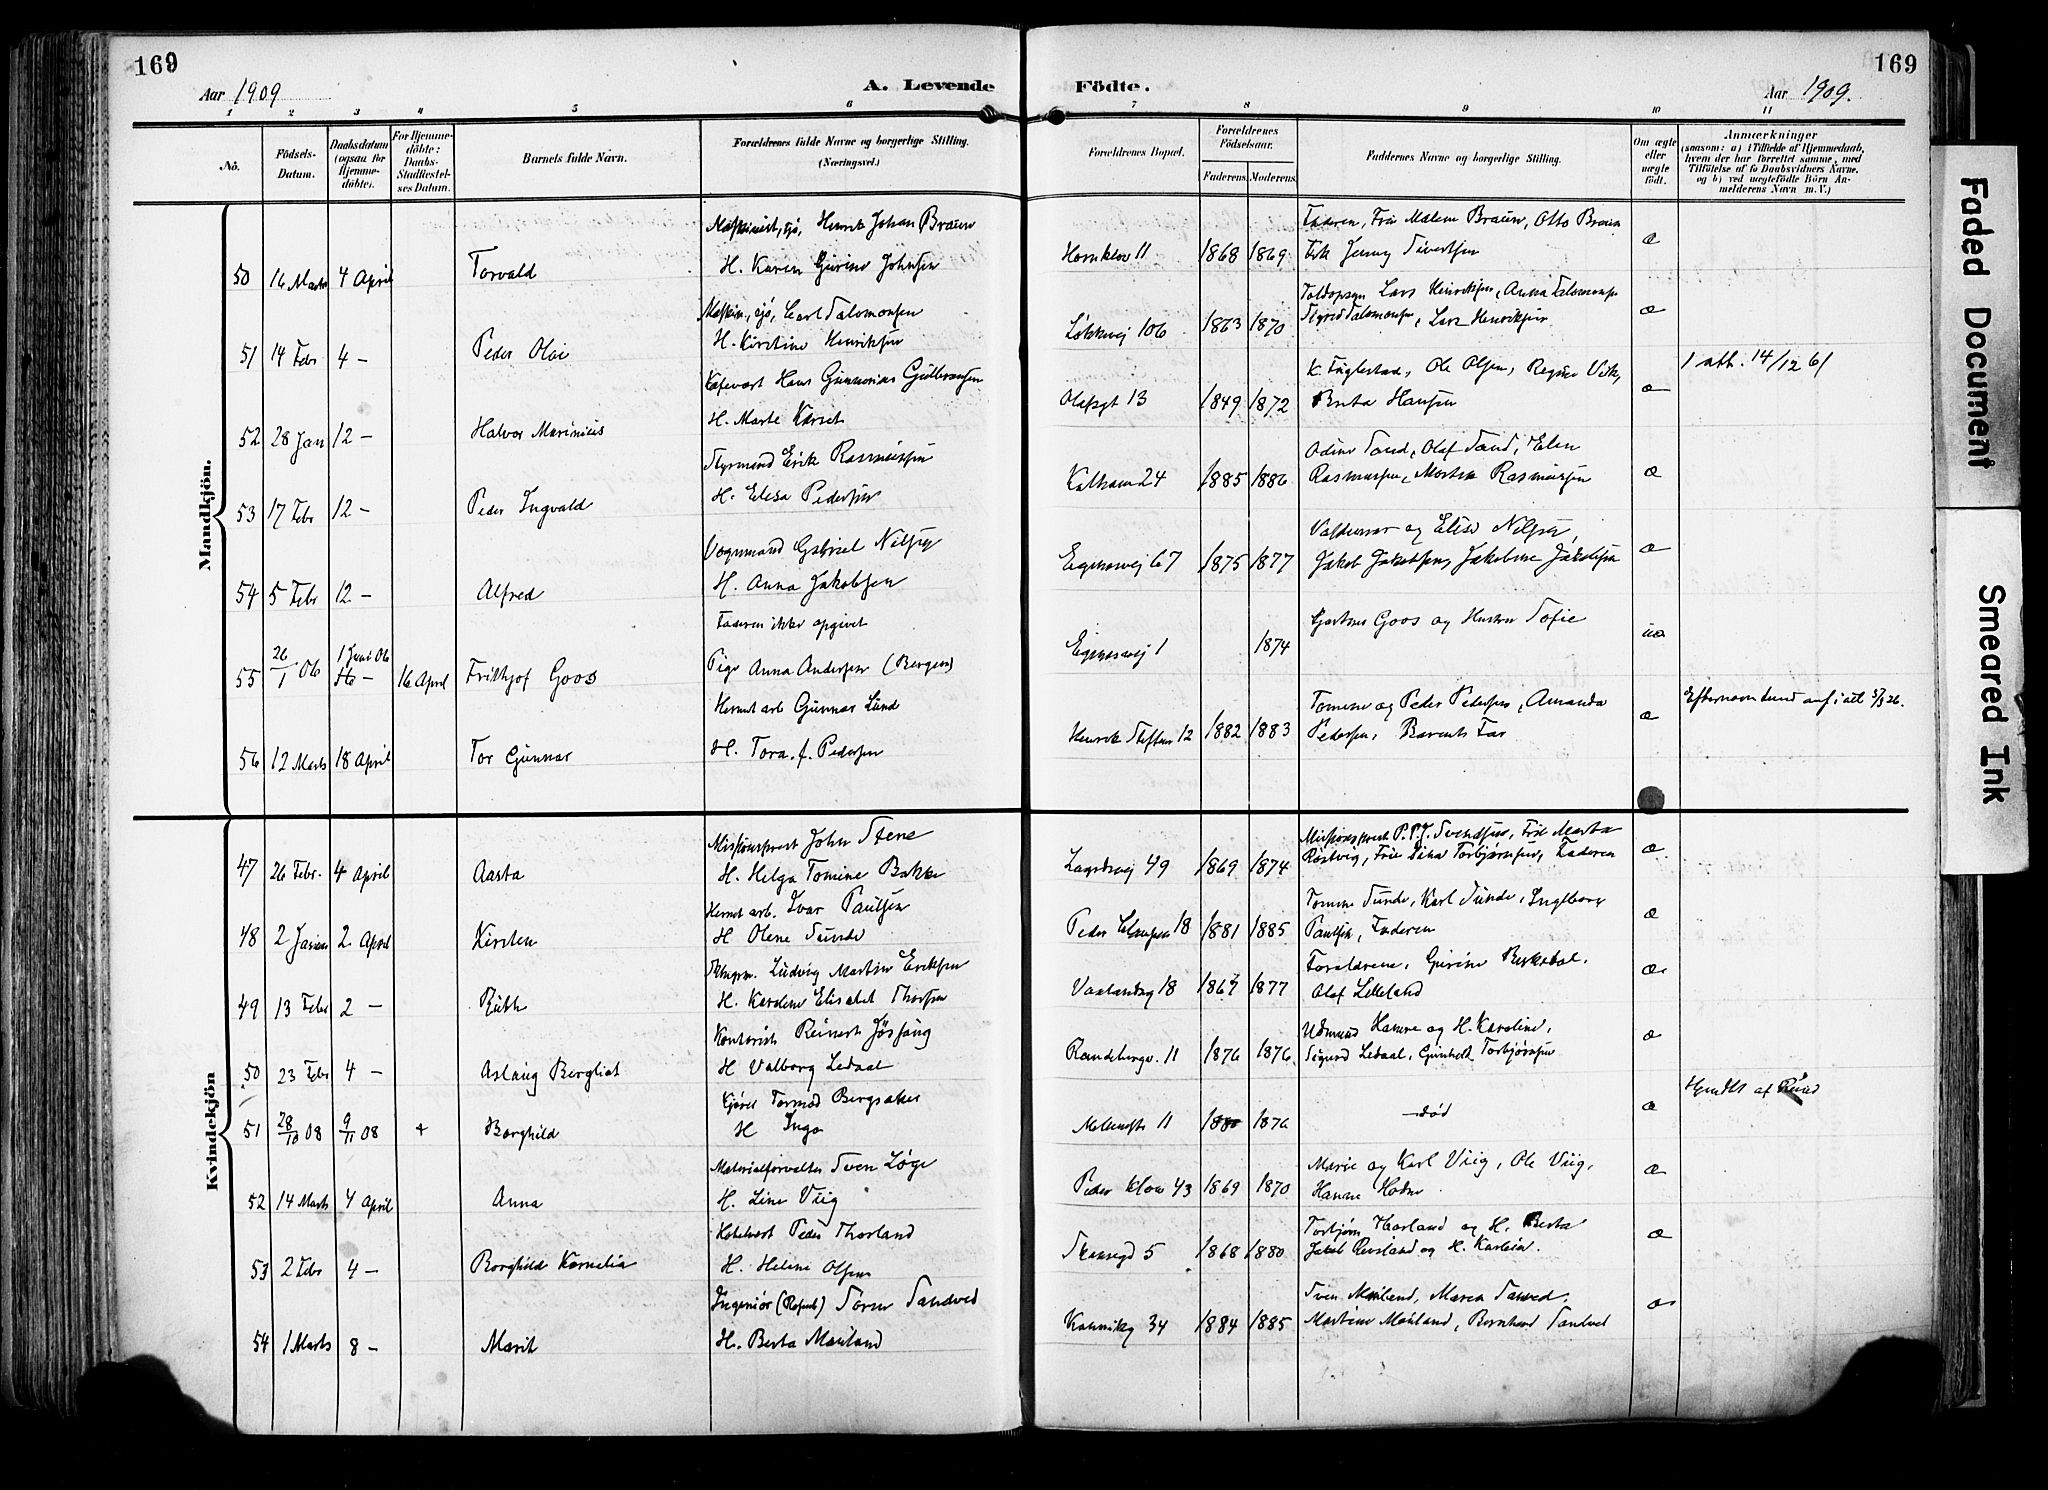 169
Aar 1909
A. Levende
Födte.
169
Aar 1909.
1 2 3 4 5 6 7 8 9 10 11
No.
Födsels-Datum.
Daabsdatum (ogsaa for Hjemmedöbte).
For Hjemmedöbte: Daabs-Stadfæstelses Datum.
Barnets fulde Navn.
Forældrenes fulde Navne og borgerlige Stilling. (Næringsvei.)
Forældrenes Bopæl.
Forældrenes Födselsaar.
Faderens. Moderens.
Faddernes Navne og borgerlige Stilling.
Om ægte eller uægte födt.
Anmærkninger
(saasom: a) i Tilfælde af Hjemmedaab, hvem der har forrettet samme, med Tilföielse af to Daabsvidners Navne. og b) ved uægtefödte Börn Anmelderens Navn m. V.)
Mandkjön.
Maskinist, sjø, Henrik Johan Braun
Faderen, Frk Malene Braun, Otto Braun
50 16 Marts 4 April Torvald H. Karen Gurine Johnsen
Hornklov 11 1868 1869 Frk Jenny Sivertsen æ
Maskin., sjø, Carl Salomonsen
Toldopsyn Lars Henriksen, Anna Salomonsen
51 14 Febr 4 - Peder Olai H. Kirstine Henriksen
Løkkevej 106 1863 1870 Sigrid Salomonsen, Lars Henriksen æ
1 att. 14/12 61
Kafevært Hans Gunnarius Gulbransen
K. Fuglestad, Ole Olsen, Regine Vik,
52 28 Jan 12 - Halvor Marinius H. Marte Karset
Olafsgt 13 1849 1872 Berta Hansen æ
Styrmand Erik Rasmussen
Odine Sand, Olaf Sand, Elen
53 17 Febr 12 - Peder Ingvald H. Elisa Pedersen
Kalham 24 1885 1886 Rasmussen, Martin Rasmussen æ
Vognmand Gabriel Nilsen
Valdemar og Elise Nilsen,
54 5 Febr 12 - Alfred H. Anna Jakobsen
Egenesvej 67 1875 1877 Jakob Jakobsen, Jakobine Jakobsen æ
Faderen ikke opgivet
Gartner Goos og Hustru Sofie
55 26/1 06 1 Juni 06 16 April Frithjof Goos Pige Anna Andersen (Bergen)
Egenesvej 1 1874 uæ
Hermet arb Gunnar Lund
Tomine og Peder Pedersen, Amanda
Efternavn Lund anf i att 5/3 26.
56 12 Marts 18 April Tor Gunnar H. Tora f. Pedersen
Henrik Steffens 12 1882 1883 Pedersen, Barnets Far æ
Kvindekjön
Missionsprest John Stene
Missionsprest P.P.J. Svendsen, Frk Marta
47 26 Febr. 4 April Aasta H. Helga Tomine Bakke
Lagaardsvej 49 1869 1874 Røstvig, Frk Dina Torbjørnsen, Faderen æ
Hermet arb. Ivar Paulsen
Tomine Sunde, Karl Sunde, Ingeborg
48 2 Januar 2 April Kirsten H Olene Sunde
Peder Claussen 18 1881 1885 Paulsen, Faderen æ
Ludvig Martin Eriksen
Forældrene, Gurine
49 13 Febr 2 - Ruth H. Karoline Elisabet Thorsen
Vaalandsg 18 1867 1877 Olaf Lilleland æ
Kontorist Reinert Jøsfang
Udmund Hamre og H. Karoline,
50 23 Febr 4 - Aslaug Bergliot H Valborg Ledaal
Randabergv. 11 1876 1876 Sigurd Ledaal, Gunhild Torbjørnsen æ
Kjører Tormod Bergsaker
51 28/10 08 9/11 08 + Borghild H Inga
11 1880 1876 - død æ
Materialforvalter Sven Løge
Marie og Karl Viig, Ole Viig,
52 14 Marts 4 April Anna H. Line Viig
Peder Klow 43 1869 1870 Hanne Hodne æ
Hotelvært Peder Thorland
Torbjørn Haarland og H. Berta
53 2 Febr 4 - Borghilde Kornelia H. Helene Olsen
Skansegd 5 1868 1880 Jakob Revsland og H. Karlina. æ
Ingeniør Søren Sandved
Sven Mauland, Maren Sandved.
54 1 Marts 8 - Marit H. Berta Mauland
Kannikg 34 1884 1885 Martine Mauland, Bernhard Sandved æ
Faded Document
Smeared Ink